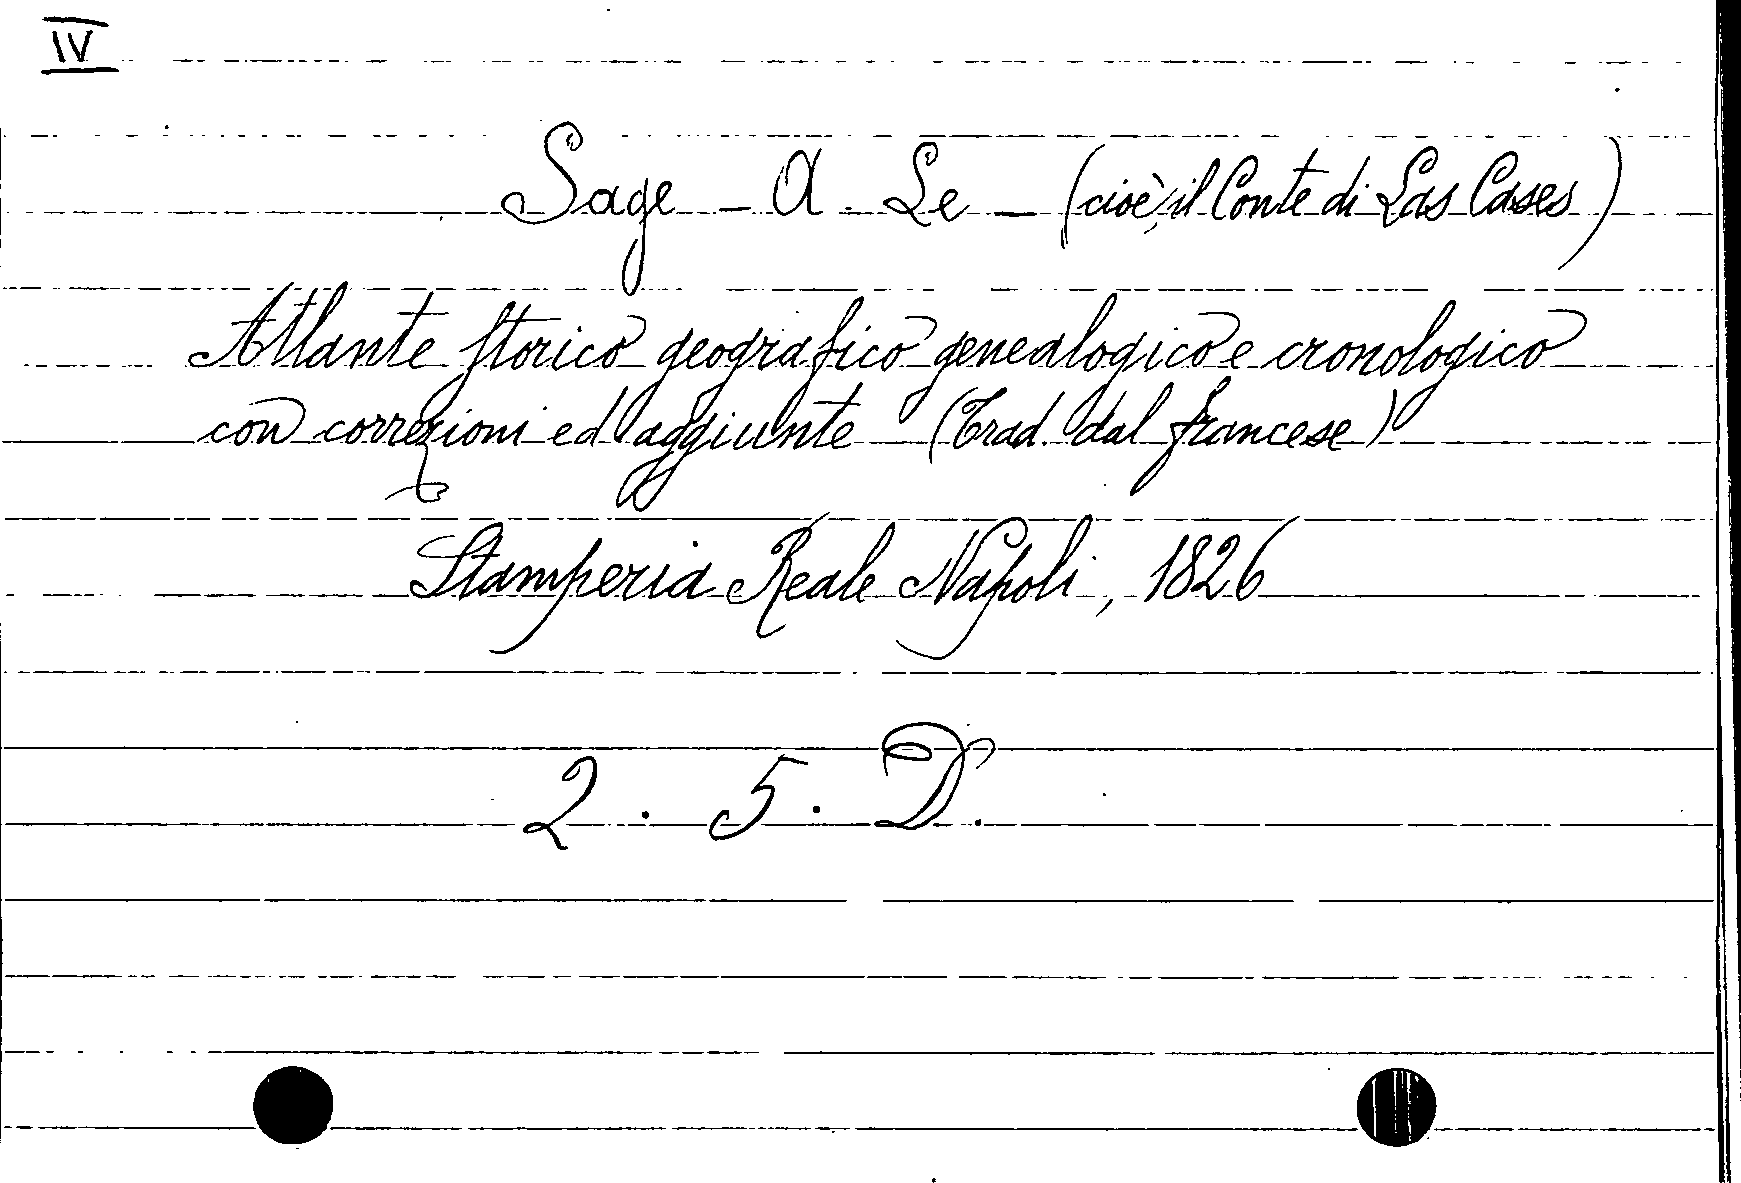 IV
Sage - A. Le - (cioè, il Conte di Las Cases)
Atlante storico geografico genealogico e cronologico
con correzioni ed aggiunte (Trad. dal francese)
Stamperia Reale Napoli, 1826
2. 5. D.